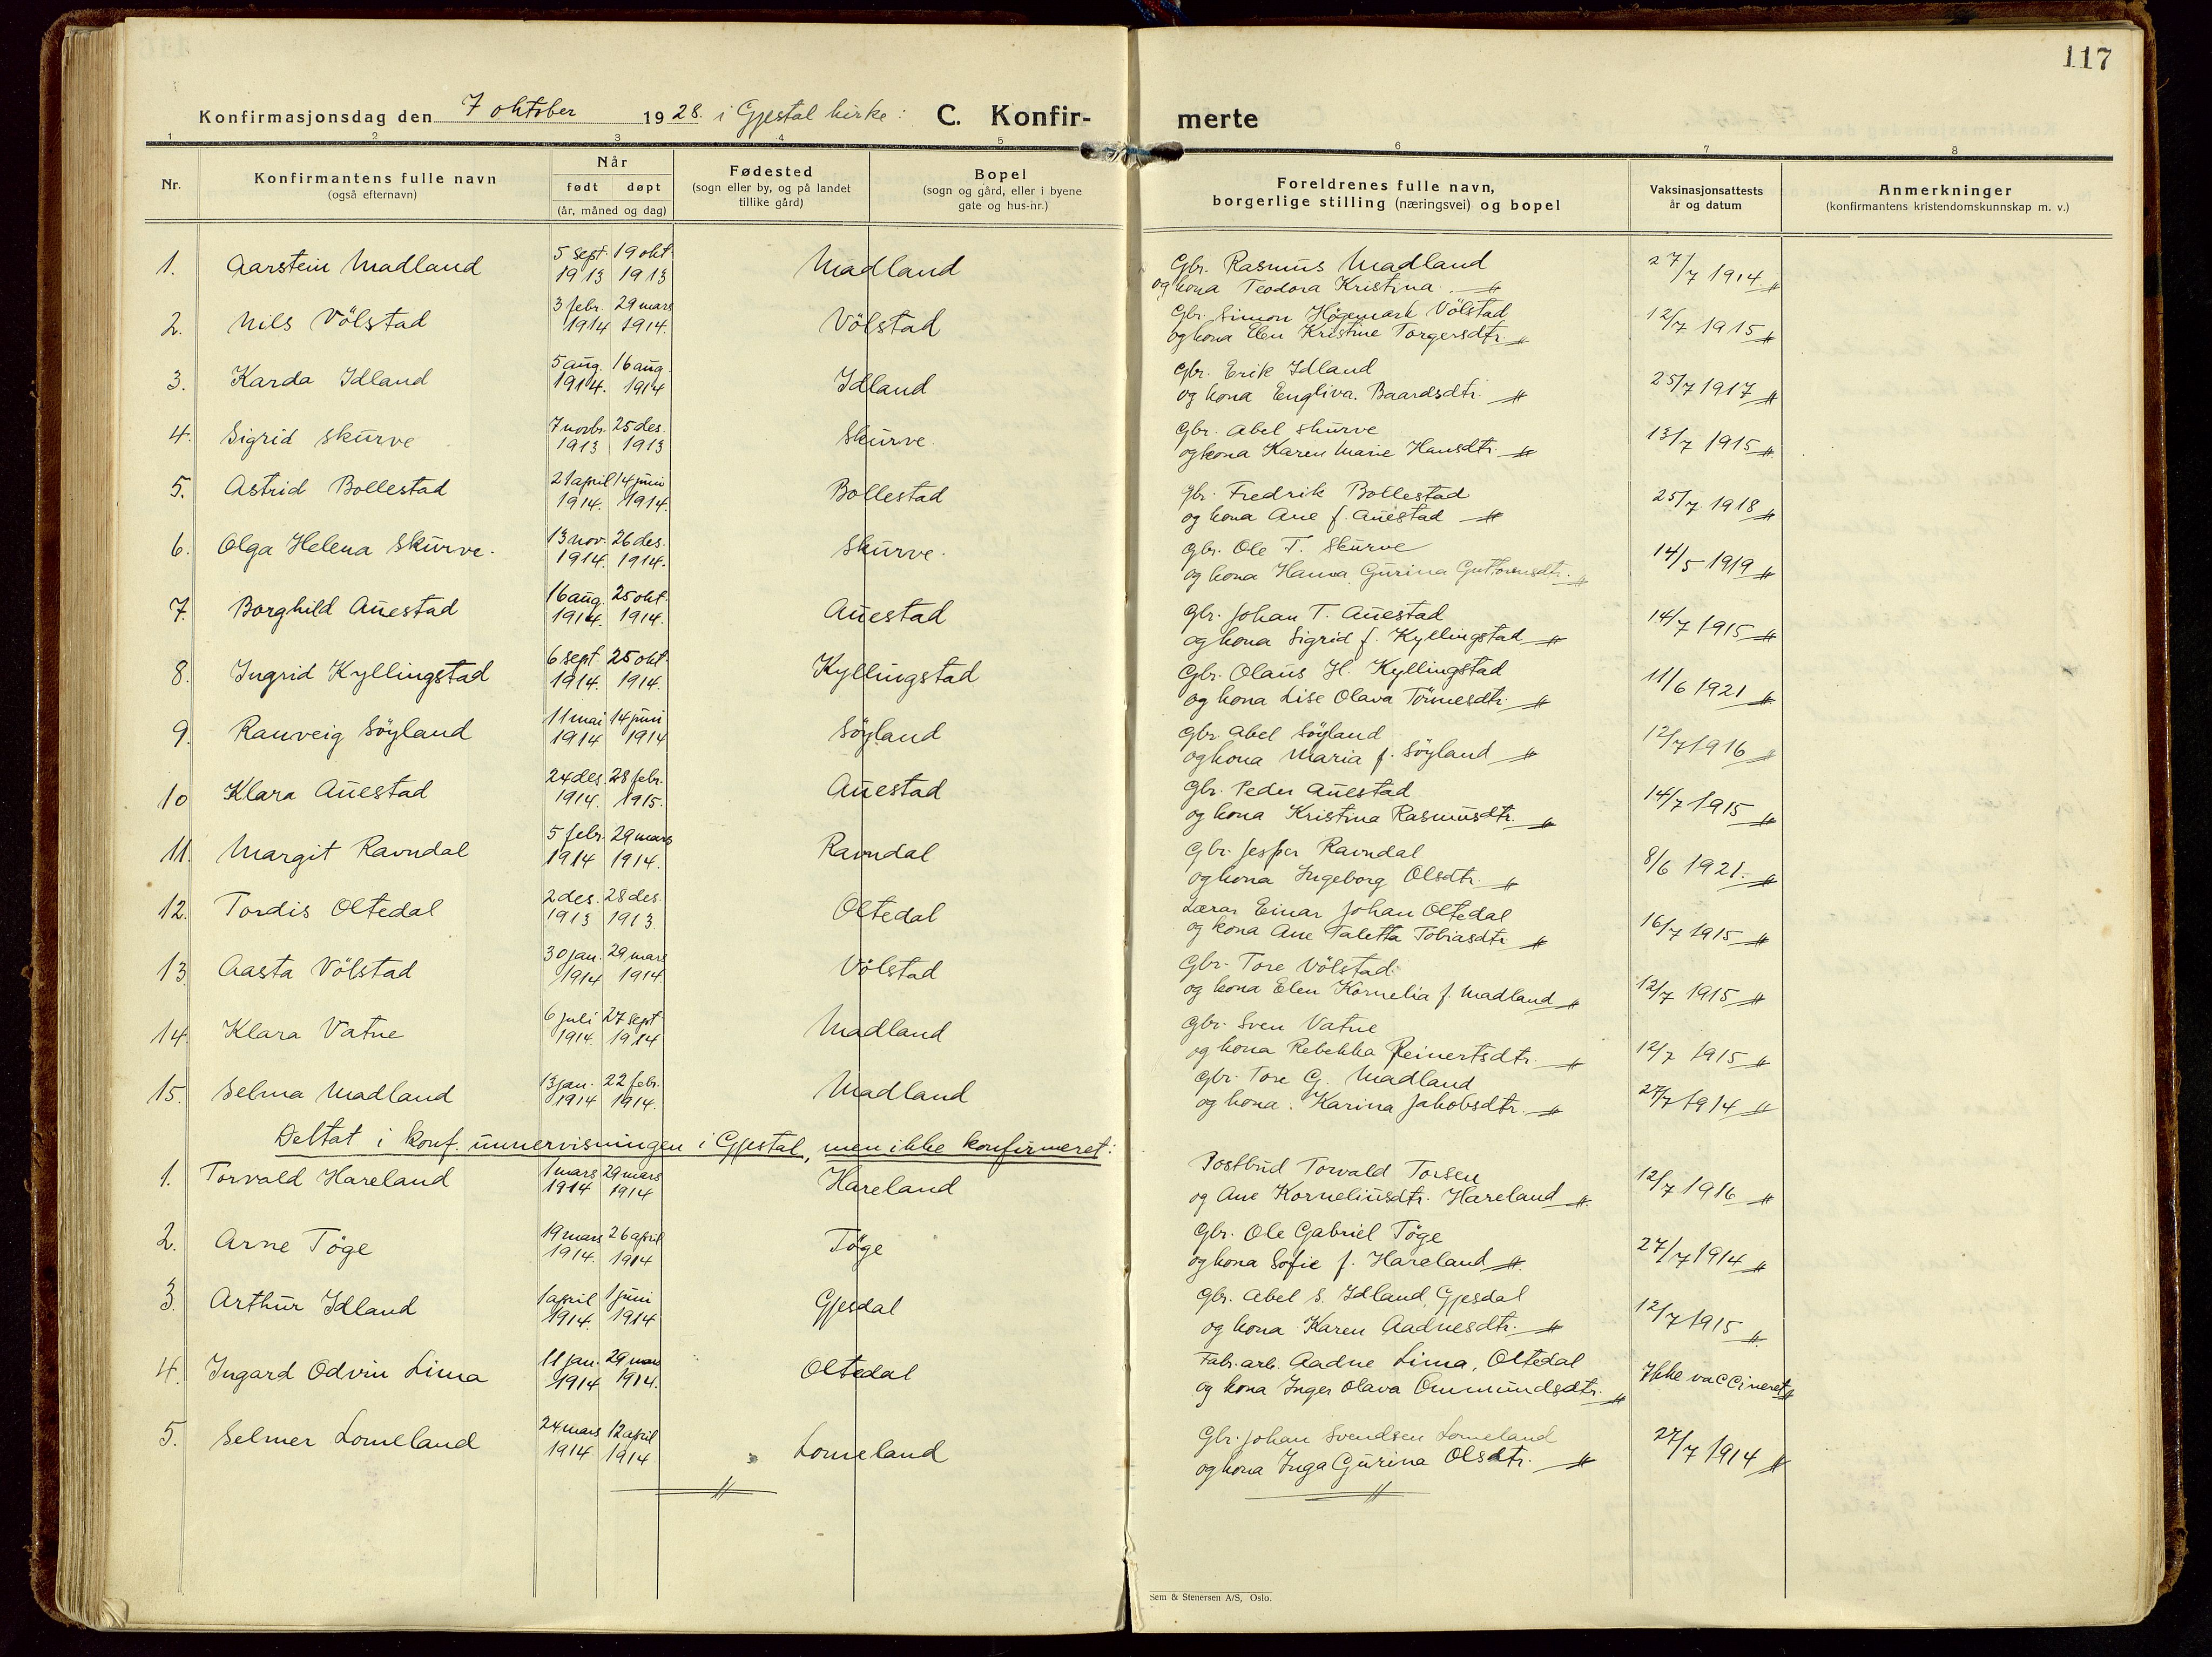 117
Konfirmasjonsdag den 7 oktober 1928. i Gjestal kirke: C. Konfir- merte
1 2 3 4 5 6 7 8
Nr.
Konfirmantens fulle navn
(også efternavn)
Når
født døpt
(år, måned og dag)
Fødested
(sogn eller by, og på landet
tillike gård)
Bopel
(sogn og gård, eller i byene
gate og hus-nr.)
Foreldrenes fulle navn,
borgerlige stilling (næringsvei) og bopel
Vaksinasjonsattests
år og datum
Anmerkninger
(konfirmantens kristendomskunnskap m. v.)
1. Aarstein Madland 5 sept. 1913 19 okt. 1913 Madland Gbr. Rasmus Madland 27/7 1914 〃
og kona Teodora Kristina. 〃
2. Nils Völstad 3 febr. 1914 29 mars 1914. Völstad Gbr. Simon Högemark Völstad 12/7 1915 〃
og kona Elen Kristine Torgersdtr. 〃
3. Karda Idland 5 aug. 1914. 16 aug. 1914 Idland Gbr. Erik Idland 25/7 1917 〃
og kona Engliva. Baardsdtr. 〃
4. Sigrid Skurve 7 novbr. 1913 25 des. 1913 Skurve. Gbr. Abel Skurve 13/7 1915 〃
og kona Karen Marie Hansdtr. 〃
5. Astrid Bollestad 21 april 1914. 14 juni 1914. Bollestad Gbr. Fredrik Bollestad 25/7 1918 〃
og kona Ane f. Auestad 〃
6. Olga Helena Skurve. 13 nov. 1914. 26 des. 1914. Skurve. Gbr. Ole T. Skurve 14/5 1919 〃
og kona Hanna Gurina Guttormsdtr. 〃
7. Borghild Auestad 16 aug. 1914. 25 okt 1914. Auestad Gbr. Johan T. Auestad 14/7 1915 〃
og kona Sigrid f. Kyllingstad 〃
8. Ingrid Kyllingstad 6 sept. 1914. 25 okt. 1914. Kyllingstad Gbr. Olaus H. Kyllingstad 11/6 1921 〃
og kona Lise Olava Tönnesdtr. 〃
9. Ranveig Söyland 11 mai 1914 14 juni 1914 Söyland Gbr. Abel Söyland 12/7 1916 〃
og kona Maria f. Söyland 〃
10 Klara Auestad 24 des. 1914. 28 febr. 1915. Auestad Gbr. Peder Auestad 14/7 1915 〃
og kona Kristina Rasmusdtr. 〃
11. Margit Ravndal 5 febr. 1914 29 mars 1914. Ravndal Gbr. Jesper Ravndal 8/6 1921. 〃
og kona Ingeborg Olsdtr. 〃
12. Tordis Oltedal 2 des. 1913 28 des. 1913. Oltedal Lærar Einar Johan Oltedal 16/7 1915 〃
og kona Ane Taletta Tobiasdtr 〃
13. Aasta Völstad 30 jan. 1914 29 mars 1914. Völstad Gbr. Tore Völstad. 12/7 1915 〃
og kona Elen Kornelia f. Madland 〃
14. Klara Vatne 6 juli 1914. 27 sept 1914 Madland Gbr. Sven Vatne 12/7 1915 〃
og kona Rebekka Reinertsdtr. 〃
15. Selma Madland 13 jan. 1914 22 febr. 1914. Madland Gbr. Tore G. Madland 27/7 1914 〃
og kona. Karina Jakobsdtr. 〃
Deltat i konf. unnervisningen i Gjestal, men ikke konfirmeret:
1. Torvald Hareland 1 mars 1914 29 mars 1914 Hareland Postbud Torvald Torsen 12/7 1916 〃
og Ane Korneliusdtr. Hareland 〃
2. Arne Töge 19 mars 1914. 26 april 1914 Töge Gbr. Ole Gabriel Töge 27/7 1914 〃
og kona Sofie f. Hareland 〃
3. Arthur Idland 1 april 1914. 1 juni 1914 Gjesdal Gbr. Abel S. Idland, Gjesdal 12/7 1915 〃
og kona Karen Aadnesdtr. 〃
4. Ingard Odvin Lima 11 jan. 1914 29 mars 1914. Oltedal Fabr. arb. Aadne Lima, Oltedal Ikke vaccineret 〃
og kona Inger Olava Ommundsdtr. 〃
5. Selmer Lomeland 24 mars 1914 12 april 1914 Lomeland Gbr. Johan Svendsen Lomeland 27/7 1914 〃
og kona Inga Gurina Olsdtr. 〃
Sem & Stenersen A/S, Oslo.